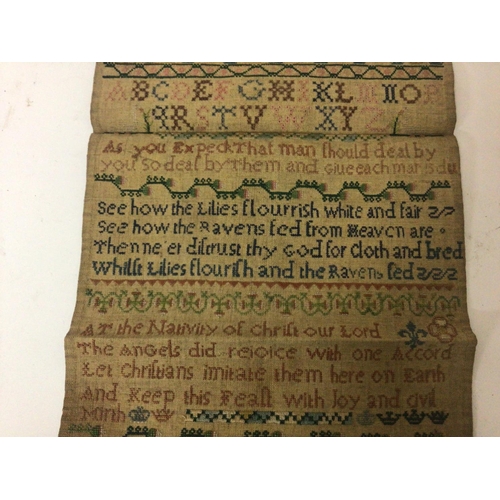 ABCDEFGHIKLMNOP
QRSTVWXYZ
As you Expect That man should deal by
you so deal by Them and Give each man is du
See how the Lilies flourrish white and fair
See how the Ravens fed from Heaven are
Then ne er distrust thy God for Cloth and bred
Whilst Lilies flourish and the Ravens fed
At the Nativity of Christ our Lord
The Angels did rejoice with one Accord
Let Christians imitate them here on Earth
And Keep this Feast with Joy and civil
Mirth